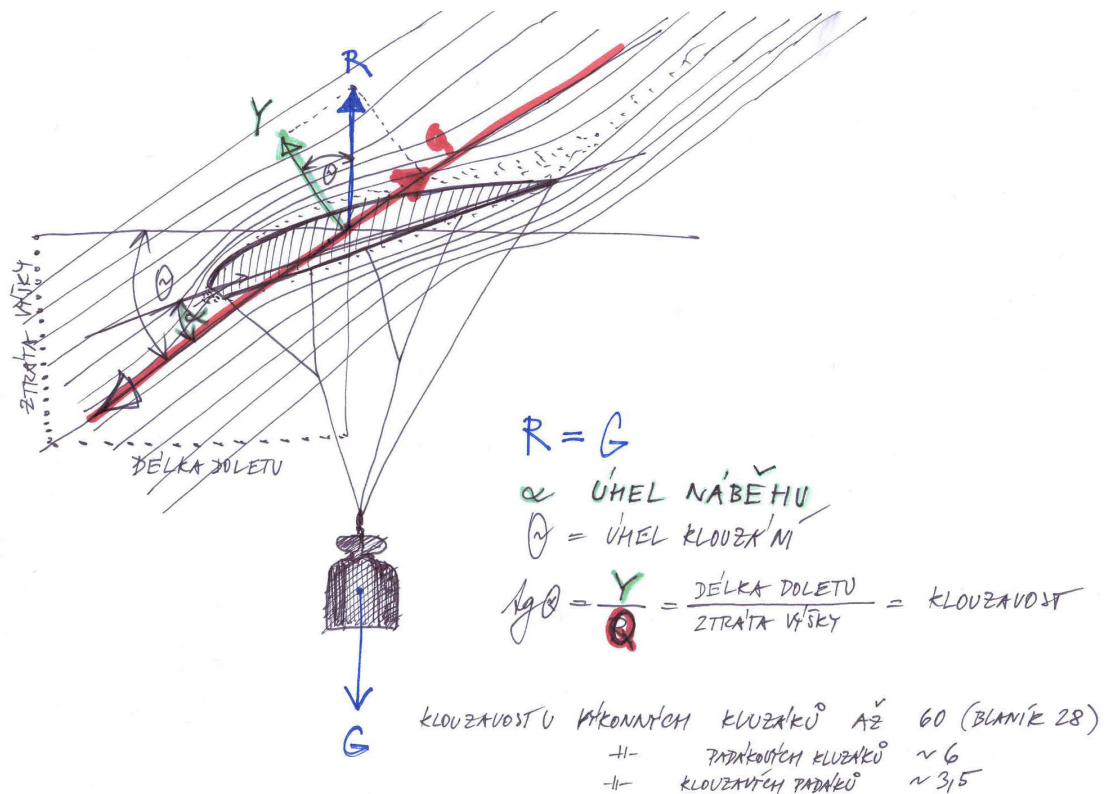 R
Y
Q
Θ
Θ
α
ZTRÁTA VÝŠKY
DÉLKA DOLETU
G
R = G
α ÚHEL NÁBĚHU
Θ = ÚHEL KLOUZÁNÍ
tgΘ = Y/Q = DÉLKA DOLETU/ZTRÁTA VÝŠKY = KLOUZAVOST
KLOUZAVOST U VÝKONNÝCH KLUZÁKŮ AŽ 60 (BLANÍK 28)
-||- PADÁKOVÝCH KLUZÁKŮ ~ 6
-||- KLOUZAVÝCH PADÁKŮ ~ 3,5